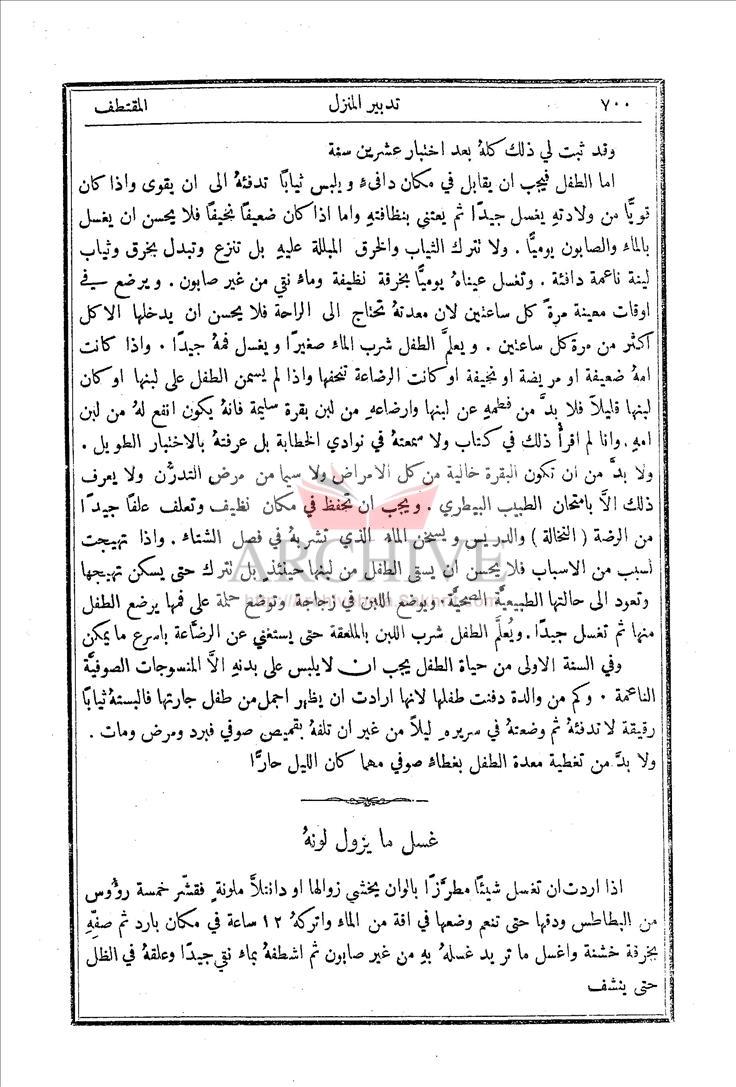 ٧٠٠ تدبير المنزل المقتطف
وقد ثبت لي ذلك كلهُ بعد اختبار عشرين سنة
اما الطفل فيجب ان يقابل في مكان دافىء ويلبس ثيابًا تدفئهُ الى ان يقوى واذا كان
قويًّا من ولادتهِ يغسل جيدًا ثم يعتني بنظافتهِ واما اذا كان ضعيفًا نحيفًا فلا يحسن ان يغسل
بالماء والصابون يوميًّا . ولا تترك الثياب والخرق المبللة عليهِ بل تنزع وتبدل بخرق وثياب
لينة ناعمة دافئة . وتغسل عيناهُ يوميًّا بخرقة نظيفة وماء نقي من غير صابون . ويرضع في
اوقات معينة مرة كل ساعتين لان معدتهُ تحتاج الى الراحة فلا يحسن ان يدخلها الاكل
اكثر من مرة كل ساعتين . ويعلَّم الطفل شرب الماء صغيرًا ويغسل فمهُ جيدًا . واذا كانت
امهُ ضعيفة او مريضة او نحيفة او كانت الرضاعة تنحفها واذا لم يسمن الطفل على لبنها او كان
لبنها قليلًا فلا بدَّ من فطمهِ عن لبنها وارضاعهِ من لبن بقرة سليمة فانهُ يكون انفع لهُ من لبن
امهِ . وانا لم اقرأ ذلك في كتاب ولا سمعتهُ في نوادي الخطابة بل عرفتهُ بالاختبار الطويل .
ولا بدَّ من ان تكون البقرة خالية من كل الامراض ولا سيما من مرض التدرُّن ولا يعرف
ذلك الَّا بامتحان الطبيب البيطري . ويجب ان تحفظ في مكان نظيف وتعلف علفًا جيدًا
من الرضة ( النخالة ) والدريس ويسخن الماء الذي تشربهُ في فصل الشتاء . واذا تهيجت
لسبب من الاسباب فلا يحسن ان يسقى الطفل من لبنها حينئذٍ بل تترك حتى يسكن تهيجها
وتعود الى حالتها الطبيعيَّة الصحيَّة . ويوضع اللبن في زجاجة وتوضع حلمة على فمها يرضع الطفل
منها ثم تغسل جيدًا . ويُعلَّم الطفل شرب اللبن بالملعقة حتى يستغني عن الرضَّاعة باسرع ما يمكن
وفي السنة الاولى من حياة الطفل يجب ان لا يلبس على بدنهِ الَّا المنسوجات الصوفيَّة
الناعمة . وكم من والدة دفنت طفلها لانها ارادت ان يظهر اجمل من طفل جارتها فالبستهُ ثيابًا
رقيقة لا تدفئهُ ثم وضعتهُ في سريرهِ ليلًا من غير ان تلفهُ بقميص صوفي فبرد ومرض ومات .
ولا بدَّ من تغطية معدة الطفل بغطاء صوفي مهما كان الليل حارًّا
غسل ما يزول لونهُ
اذا اردت ان تغسل شيئًا مطرَّزًا بالوان يخشى زوالها او دانتلَّا ملونة فقشّر خمسة رؤُوس
من البطاطس ودقها حتى تنعم وضعها في اقة من الماء واتركهُ ١٢ ساعة في مكان بارد ثم صفِّهِ
بخرقة خشنة واغسل ما تريد غسلهُ بهِ من غير صابون ثم اشطفهُ بماء نقي جيدًا وعلقهُ في الظل
حتى ينشف
ARCHIVE